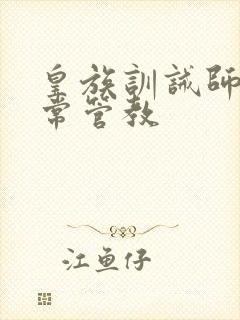 皇族訓誡師
常管教
江魚仔